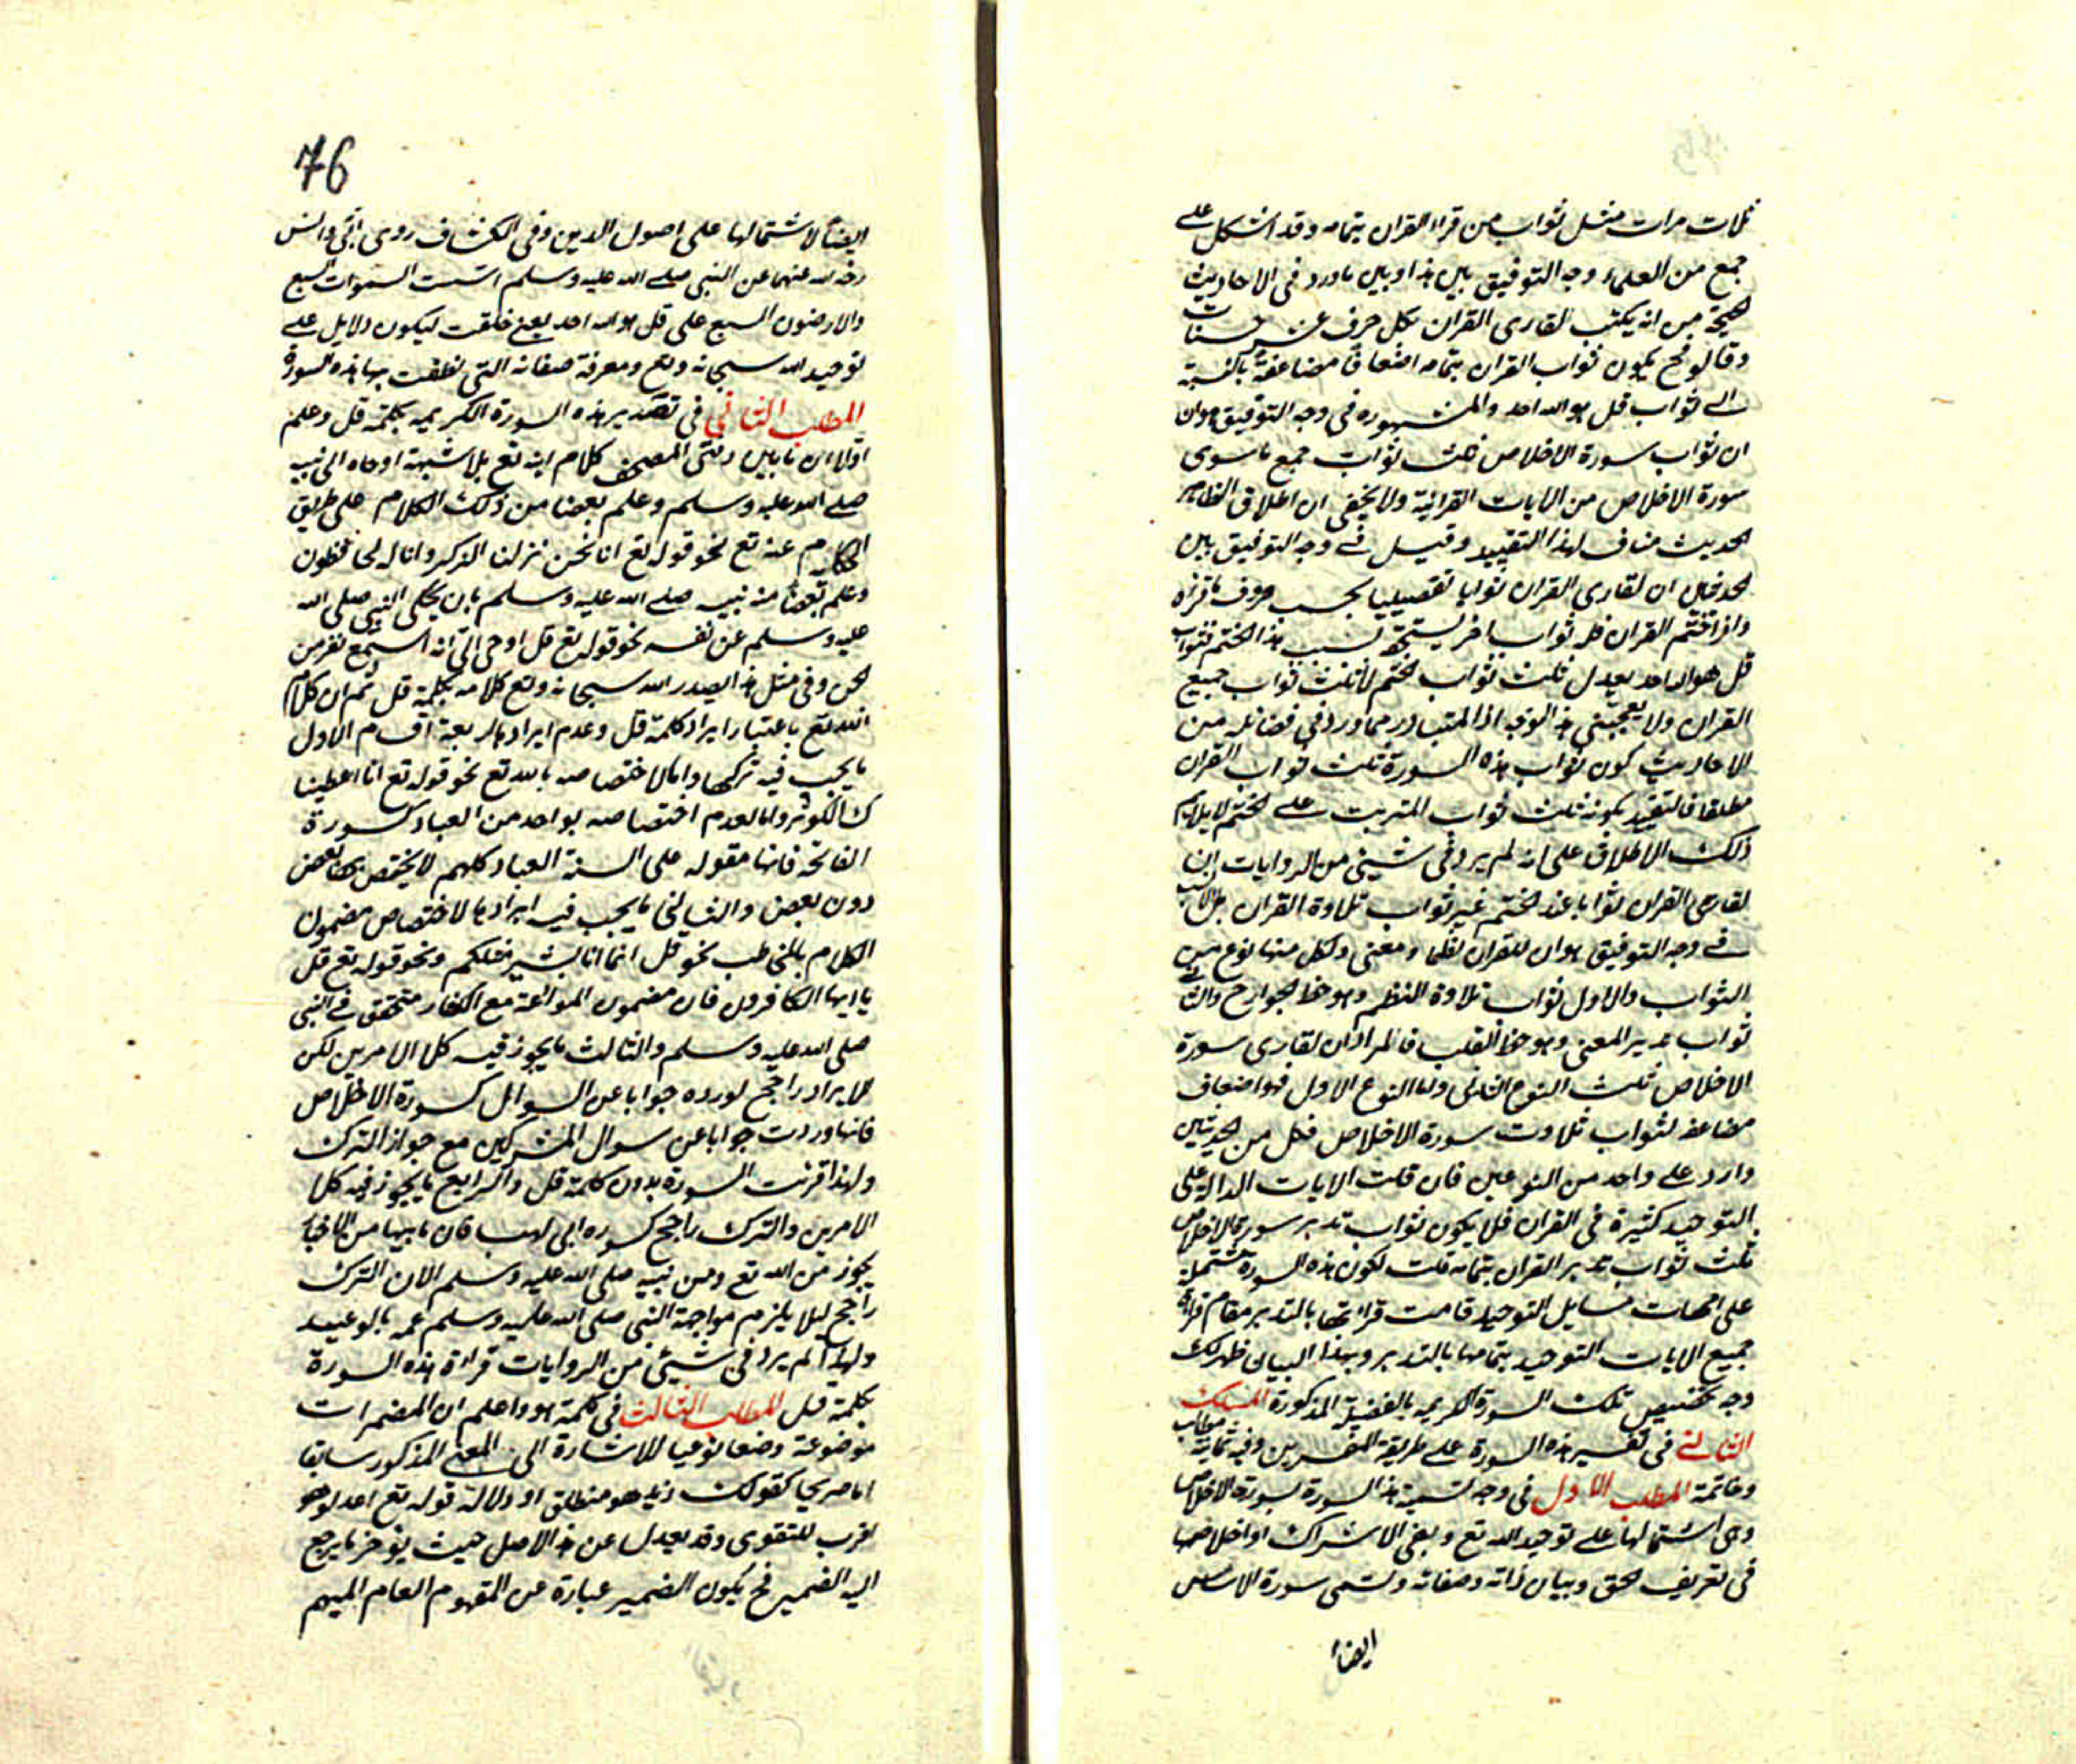 ثلاث مرات مثل ثواب من قراء القران بتمامه وقد اشكل على
جمع من العلماء وجه التوفيق بين هذا وبين ما ورد في الاحاديث
الصحيحة من انه يكتب لقارى القران بكل حرف عشر حسنات
وقالو فح يكون ثواب القران بتمامه اضعافا مضاعفة بالنسبة
الى ثواب قل هو الله احد والمشهور في وجه التوفيق هو ان
ان ثواب سورة الاخلاص ثلث ثواب جمع ما سوى
سورة الاخلاص من الايات القرانية ولا يخفى ان اطلاق الظاهر
الحديث مناف لهذا التقييد وقيل في وجه التوفيق بين
الحديثين ان لقارى القران ثوابا تفصيليا بحسب حروف ما قراه
واذا ختم القران فله ثواب اخر يستحقه بسبب هذا الختم فثواب
قل هو الله احد يعدل ثلث ثواب الختم لا ثلث ثواب جميع
القران ولا يعجبنى هذا الوجه اذ المتبادر مما ورد في فضائله من
الاحاديث كون ثواب هذه السورة ثلث ثواب القران
مطلقا فالتقييد بكونه ثلث ثواب المترتب على الختم لا يلايم
ذلك الاطلاق على انه لم يرد في شيئ من الروايات ان
لقارى القران ثوابا عند الختم غير ثواب تلاوة القران بل الانسب
في وجه التوفيق هو ان للقران لفظا ومعنى ولكل منها نوع من
الثواب والاول ثواب تلاوة النظم وهو حظ الجوارح والثاني
ثواب تدبير المعنى وهو حظ القلب فالمراد ان لقارى سورة
الاخلاص ثلث النوع الثاني واما النوع الاول فهو اضعاف
مضاعفه لثواب تلاوت سورة الاخلاص فكل من الحديثين
وارد على واحد من النوعين فان قلت الايات الدالة على
التوحيد كثيرة في القران فلا يكون ثواب تدبر سورة الاخلاص
ثلث ثواب تدبر القران بتمامه قلت لكون هذه السورة مشتملة
على امهات مسايل التوحيد قامت قراءتها بالتدبر مقام قراءة
جميع الايات التوحيد بتمامها بالتدبر وبهذا البيان ظهر لك
وجه تخصيص تلك السورة الكريمه بالفضيلة المذكورة المسلك
الثاني في تفسير هذه السورة على طريقة المفسرين وفيه ثمانية مطالب
وخاتمة المطلب الاول في وجه تسمية هذه السورة بسورة الاخلاص
وهى اشتمالها على توحيد الله تع ونفى الاشراك او اخلاصها
في تعريف الحق وبيان ذاته وصفاته وتسمى سورة الاساس
ايضاً
76
ايضاً لاشتمالها على اصول الدين وفى الكشاف روى ابىّ وانس
رضى الله عنهما عن النبى صلى الله عليه وسلم اسّست السموات السبع
والارضون السبع على قل هو الله احد يعنى خلقت ليكون دلايل على
توحيد الله سبحانه وتع ومعرفة صفاته التى نطقت بها هذه السورة
المطلب الثاني في تصدير هذه السورة الكريمه بكلمة قل وعلم
اوّلا ان ما بين دفتى المصحف كلام الله تع بلا شبهة اوحاه الى نبيه
صلى الله عليه وسلم وعلم بعضا من ذلك الكلام على طريق
الكلام عنه تع نحو قوله تع انا نحن نزلنا الذكر وانا له لحافظون
وعلم بعضا منه نبيه صلى الله عليه وسلم بان يحكى النبى صلى الله
عليه وسلم عن نفسه نحو قوله تع قل اوحى الىّ انه استمع نفر من
الجن وفى مثل هذا يصدر الله سبحانه وتع كلامه بكلمة قل ثم ان كلام
الله تع باعتبار ايراد كلمة قل وعدم ايرادها اربعة اقسام الاول
ما يجب فيه تركها واما لاختصاصه بالله تع نحو قوله تع انا اعطينا
ك الكوثر واما لعدم اختصاصه بواحد من العباد كسورة
الفاتحة فانها مقوله على السنة العباد كلهم لا يختص بها بعض
دون بعض والثاني ما يجب فيه ايرادها لاختصاص مضمون
الكلام بالمخاطب نحو قل انما انا بشر مثلكم ونحو قوله تع قل
يا ايها الكافرون فان مضمون الموادعة مع الكفار متحقق في النبى
صلى الله عليه وسلم والثالث ما يجوز فيه كلا الامرين لكن
الايراد راجح لوروده جوابا عن السوال كسورة الاخلاص
فانها وردت جوابا عن سوال المشركين مع جواز الترك
ولهذا قرئت السورة بدون كلمة قل والرابع ما يجوز فيه كلا
الامرين والترك راجح كسوره ابى لهب فان ما فيها من الاخبار
يجوز من الله تع ومن نبيه صلى الله عليه وسلم الا ان الترك
راجح ليلا يلزم مواجهة النبى صلى الله عليه وسلم عمه بالوعيد
ولهذا لم يرد في شيئ من الروايات قراءة هذه السورة
بكلمة قل المطلب الثالث في كلمة هو واعلم ان المضمرات
موضوعة وضعا نوعيا للاشارة الى المعنى المذكور سابقا
اما صريحا كقولك زيد هو منطلق او دلالة قوله تع اعدلو هو
اقرب للتقوى وقد يعدل عن هذا الاصل حيث يؤخر ما يرجع
اليه الضمير فح يكون الضمير عبارة عن المفهوم العام المبهم